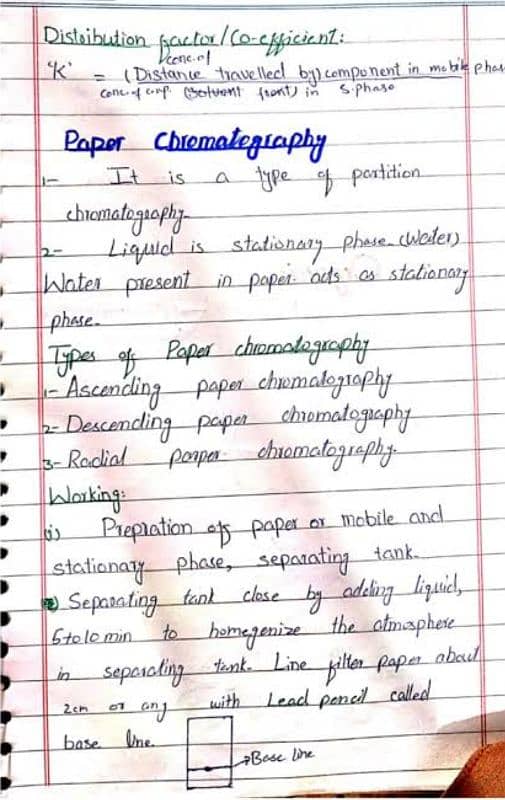 Distribution factor/Co-efficient:
conc. of
'K' = (Distance travelled by) component in mobile phas
conc. of comp. (Solvent front) in S.phase
Paper Chromatography
1- It is a type of partition
chromatography.
2- Liquid is stationary phase. (Water)
Water present in paper acts as stationary
phase.
Types of Paper chromatography
1- Ascending paper chromatography
2- Descending paper chromatography
3- Radial paper chromatography.
Working:
(i) Prepration of paper or mobile and
stationary phase, separating tank.
2) Separating tank close by adding liquid,
5 to 10 min to homogenize the atmosphere
in separating tank. Line filter paper about
2cm or any with Lead pencil called
base line.
Base line